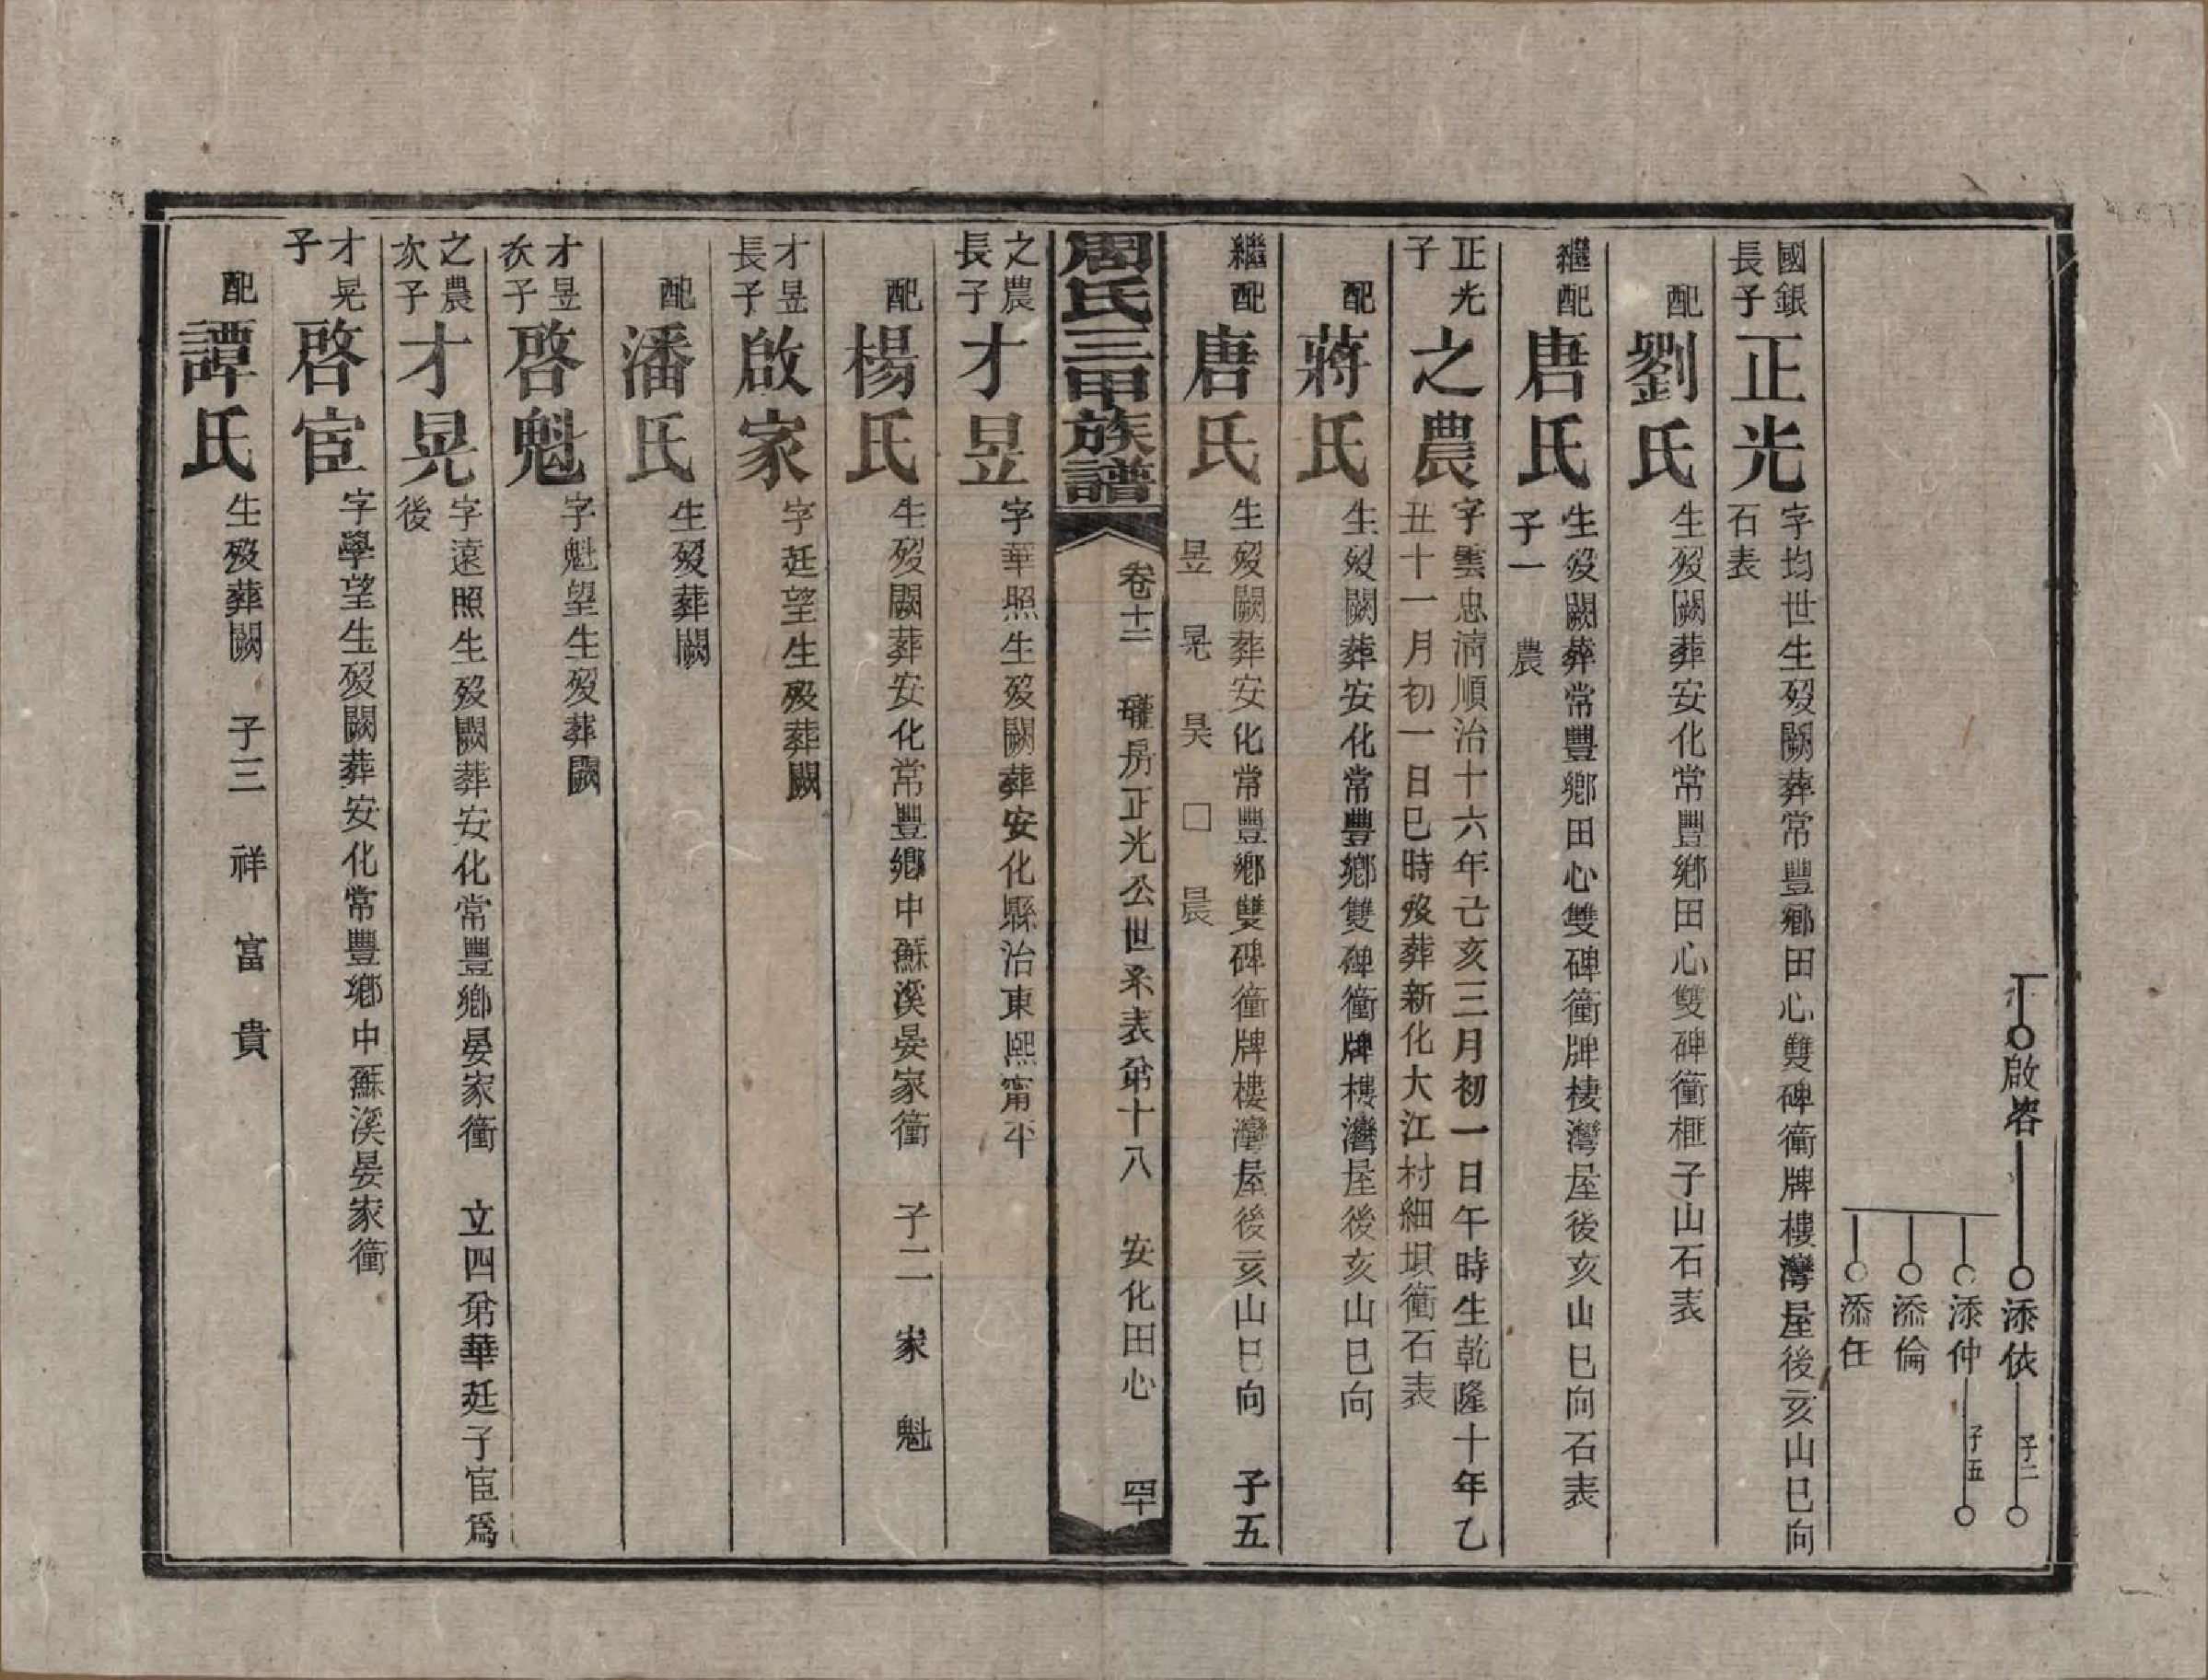 啟容
添依 子二
添仲 子五
添倫
添任
國銀長子 正光 字均世生歿闕葬常豐鄉田心雙碑衝牌樓灣屋後亥山巳向
石表
配 劉氏 生歿闕葬安化常豐鄉田心雙碑衝榧子山石表
繼配 唐氏 生歿闕葬常豐鄉田心雙碑衝牌樓灣屋後亥山巳向石表
子一 農
正光子 之農 字雲忠淸順治十六年己亥三月初一日午時生乾隆十年乙
丑十一月初一日巳時歿葬新化大江村細垻衝石表
配 蔣氏 生歿闕葬安化常豐鄉雙碑衝牌樓灣屋後亥山巳向
繼配 唐氏 生歿闕葬安化常豐鄉雙碑衝牌樓灣屋後亥山巳向 子五
昱 晃 昊 □ 晨
周氏三甲族譜 卷十二 房正光公世系表弟十八 安化田心 四十
之農長子 才昱 字華照生歿闕葬安化縣治東熙甯坪
配 楊氏 生歿闕葬安化常豐鄉中蘇溪晏家衝 子二 家 魁
才昱長子 啟家 字廷望生歿葬闕
配 潘氏 生歿葬闕
才昱次子 啓魁 字魁望生歿葬闕
之農次子 才晃 字遠照生歿闕葬安化常豐鄉晏家衝 立四弟華廷子宦爲
後
才晃子 啓宦 字學望生歿闕葬安化常豐鄉中蘇溪晏家衝
配 譚氏 生歿葬闕 子三 祥 富 貴